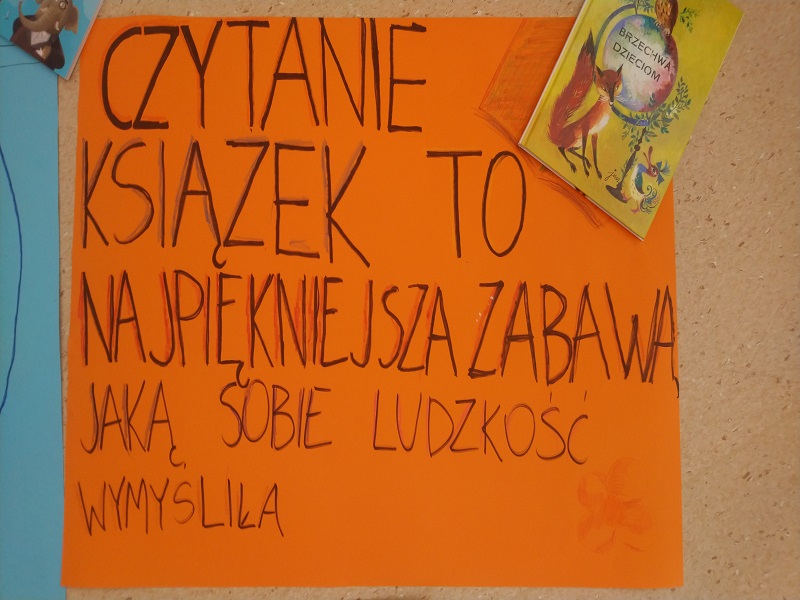 CZYTANIE
KSIĄZEK TO
NAJPIĘKNIEJSZA ZABAWĄ
JAKĄ SOBIE LUDZKOŚĆ
WYMYŚLIŁA
BRZECHWA
DZIECIOM